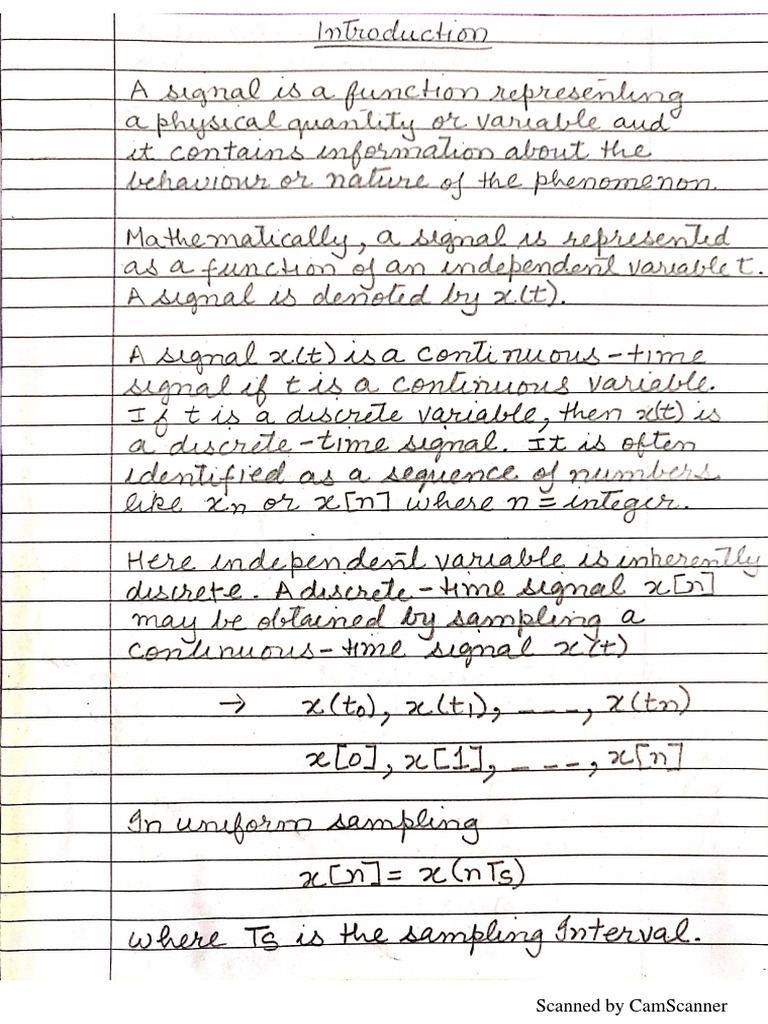 Introduction
A signal is a function representing
a physical quantity or variable and
it contains information about the
behaviour or nature of the phenomenon.
Mathematically, a signal is represented
as a function of an independent variable t.
A signal is denoted by x(t).
A signal x(t) is a continuous-time
signal if t is a continuous variable.
If t is a discrete variable, then x(t) is
a discrete-time signal. It is often
identified as a sequence of numbers
like xn or x[n] where n = integer.
Here independent variable is inherently
discrete. A discrete-time signal x[n]
may be obtained by sampling a
continuous-time signal x(t)
→ x(t0), x(t1), ----, x(tn)
x[0], x[1], ----, x[n]
In uniform sampling
x[n] = x(nTs)
where Ts is the sampling Interval.
Scanned by CamScanner